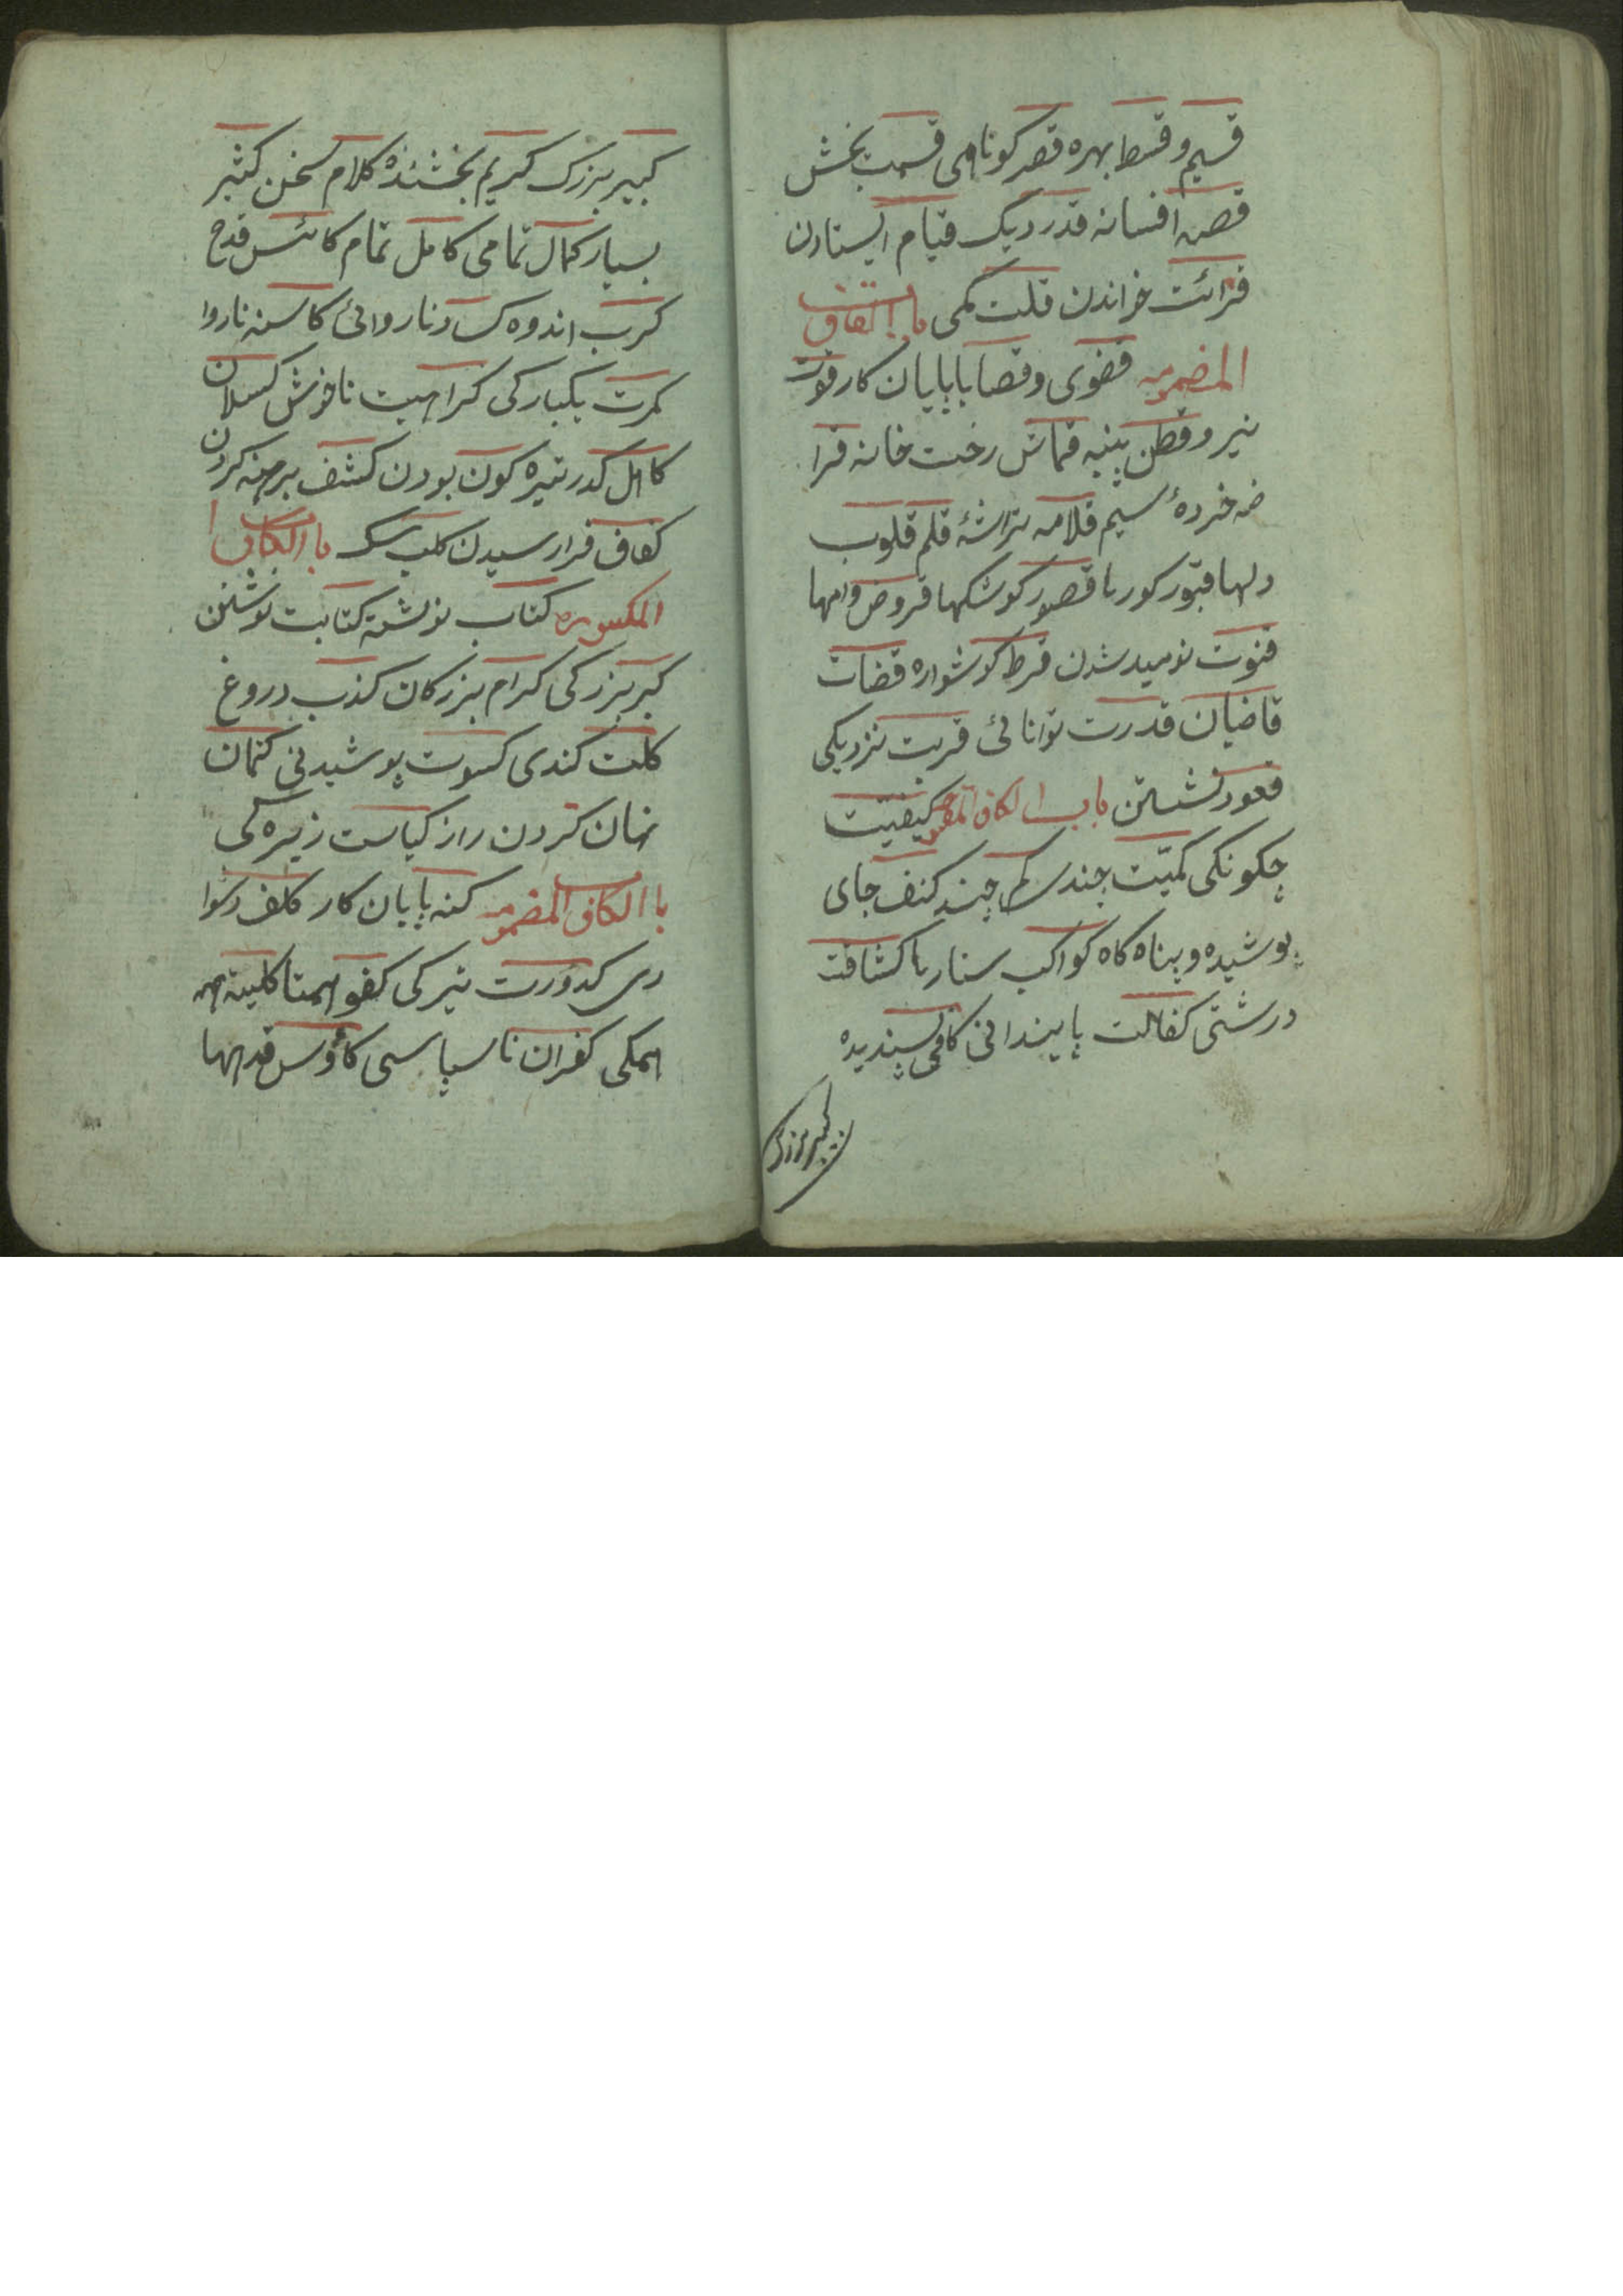 قسیم و قسط بهره قصر کوتاهی قسمت بخش
قصه افسانه قدر دیگ قیام ایستادن
قرائت خواندن قلت کمی باب القاف
المضمومه قضوی و قصابا پایان کار قوت
نیرو قطن پنبه قماش رخت خانه قرا
ضه خردهٔ سیم قلامه تراشهٔ قلم قلوب
دلها قبور کورها قصور کوشکها قروض وامها
قنوت نومید شدن قرط کوشواره قضات
قاضیان قدرت توانائی قربت نزدیکی
قعود نشستن باب الکاف کیفیت
چکونکی کمیّت چندی کم چند کنف جای
پوشیده و پناه کاه کواکب ستارها کشافت
درشتی کفالت پایندانی کافی پسندیده
کبیر بزرک
کبیر بزرک کریم بخشنده کلام سخن کثیر
بسیار کمال تمامی کامل تمام کائس قدح
کرب اندوه کساد ناروائی کاسد ناروا
کرت یکبارکی کراهیت ناخوش کسلان
کاهل کدر تیره کون بودن کشف برهنه کردن
کفاف فرا رسیدن کلب سک باب الکاف
المکسوره کتاب نوشته کتابت نوشتن
کبر بزرکی کرام بزرکان کذب دروغ
کلت کندی کسوت پوشیدنی کتمان
نهان کردن راز کیاست زیرکی
باب الکاف المضمومه کنه پایان کار کلف دشوا
ری کدورت تیرکی کفو همتا کلیته همه
همکی کفران ناسپاسی کاؤس قدحها